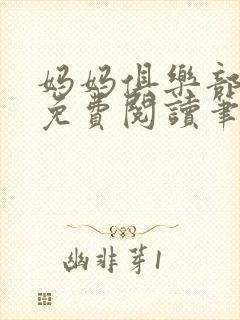 妈妈俱樂部
免費閱讀筆
幽非芽1